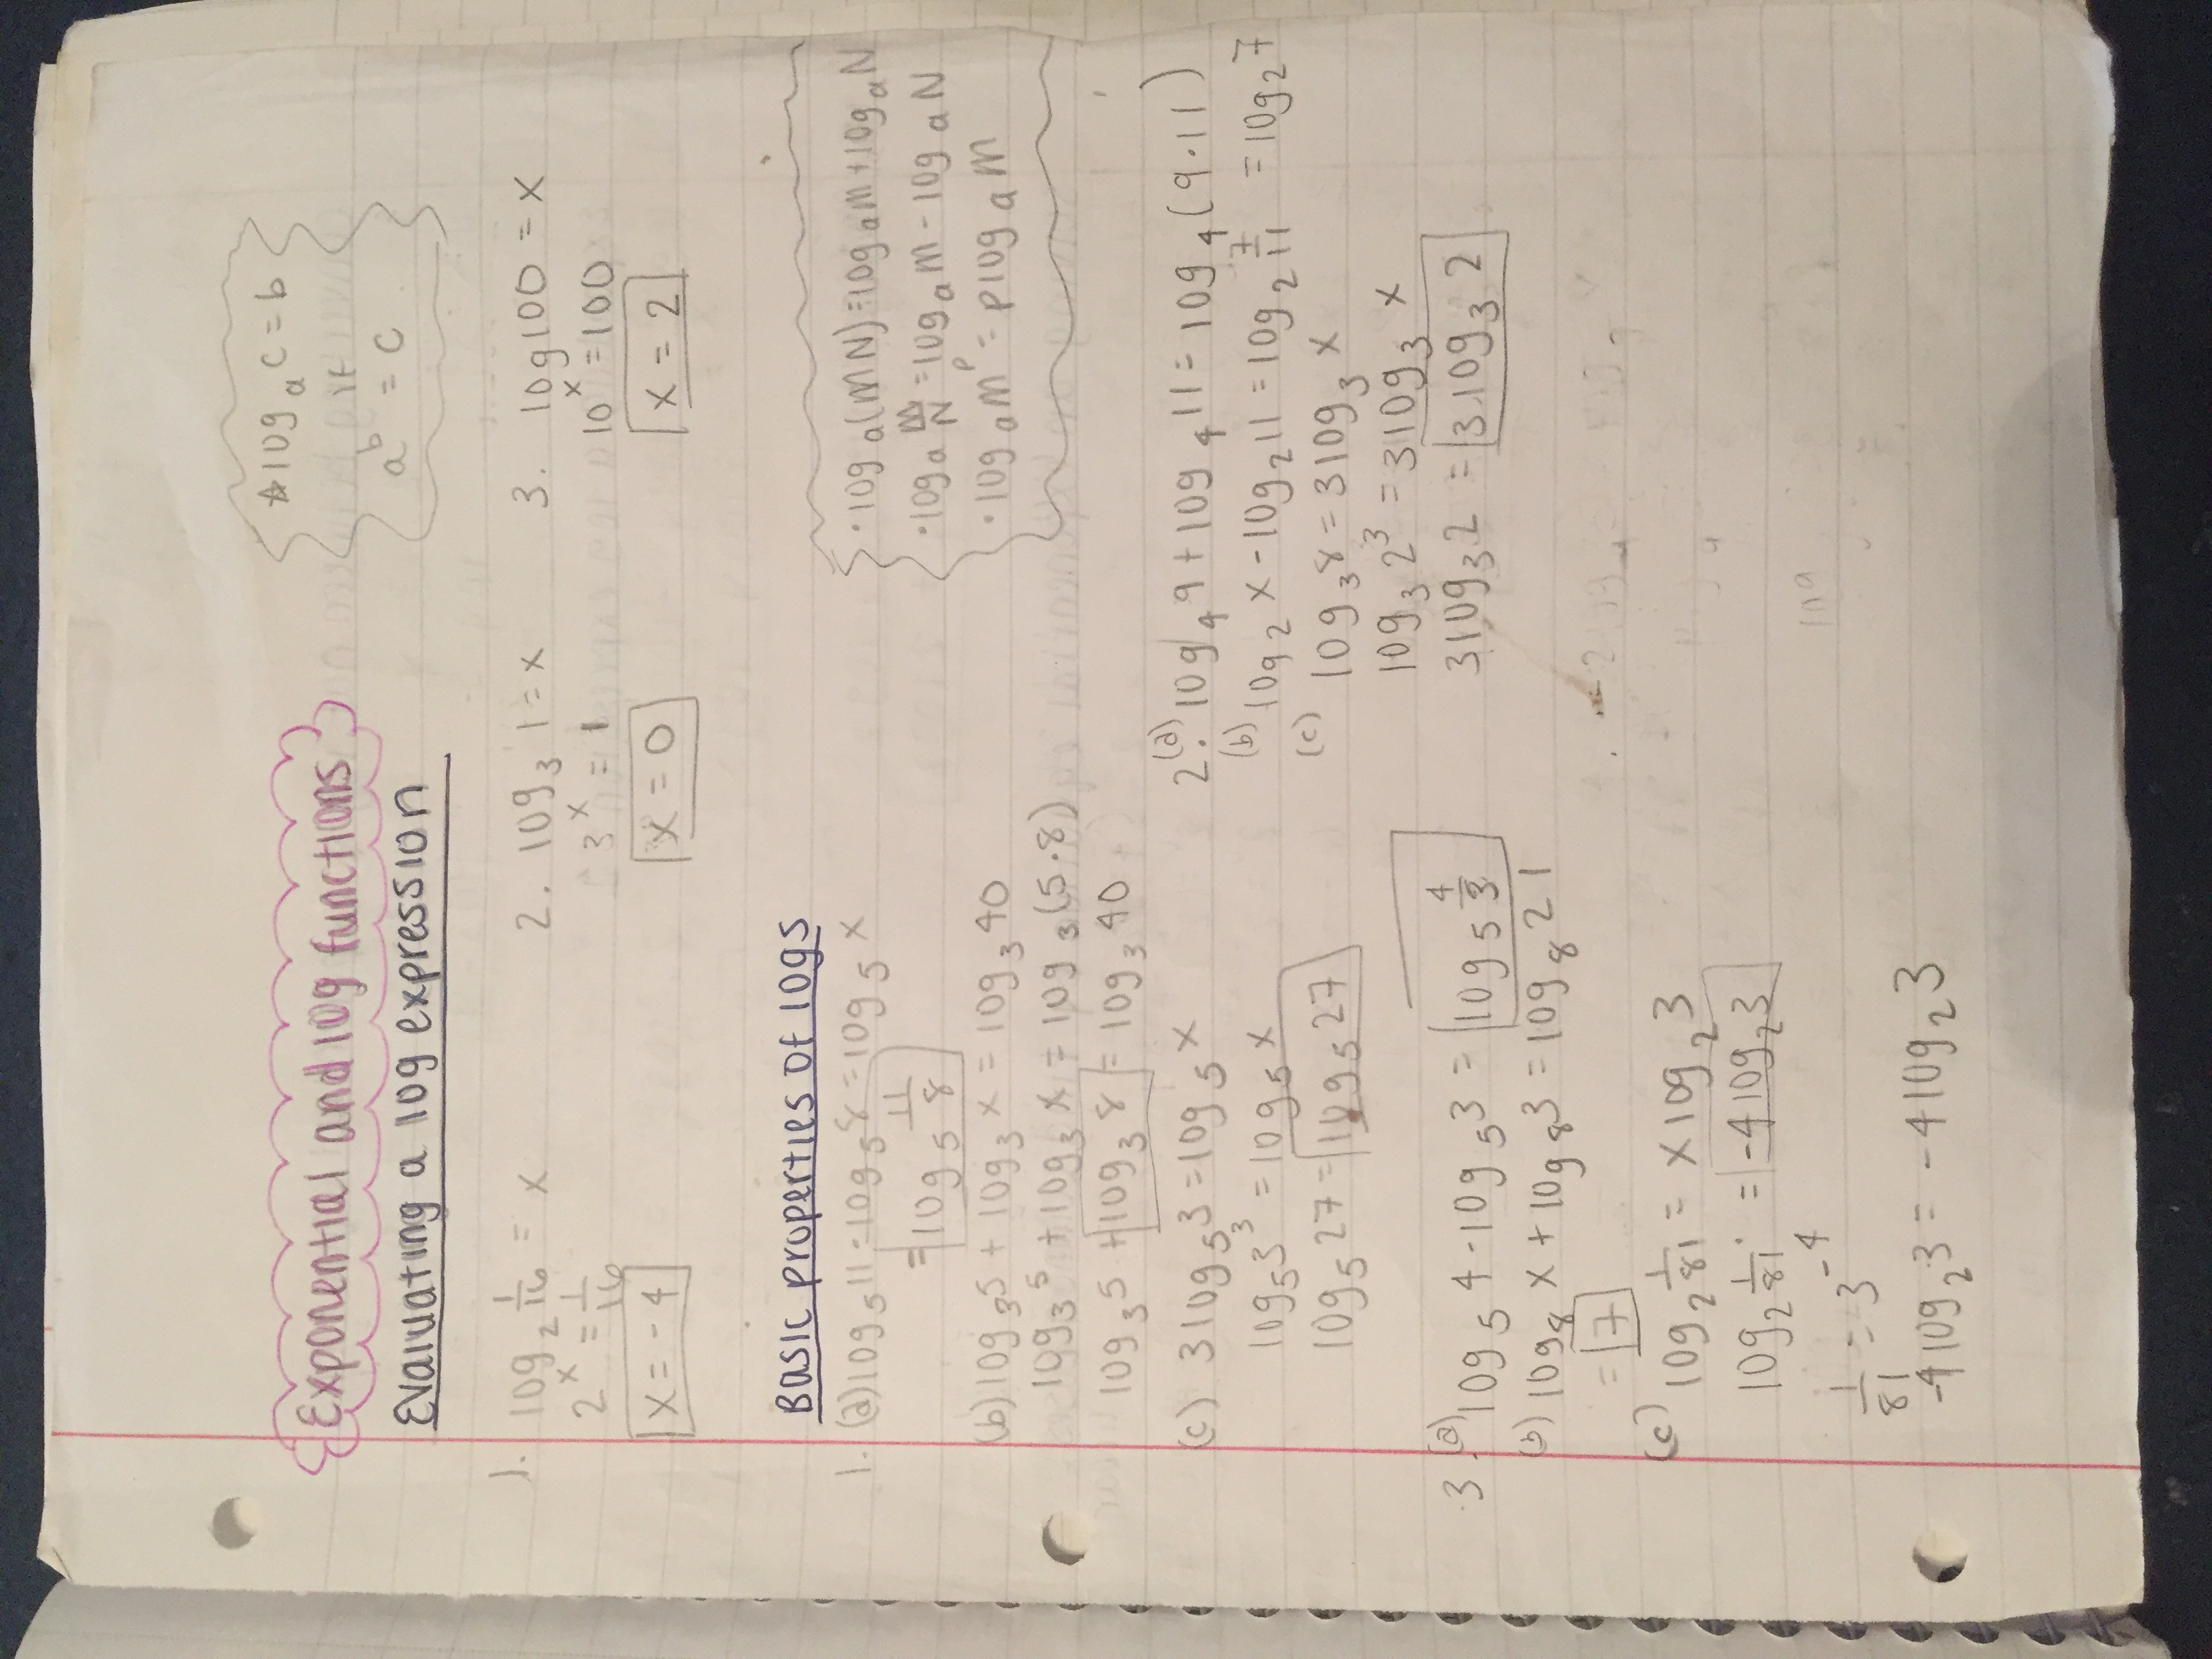 Exponential and log functions
☆ log_a c = b
a^b = c
Evaluating a log expression
1. log_2 1/16 = x
2^x = 1/16
x = -4
2. log_3 1 = x
3^x = 1
x = 0
3. log 100 = x
10^x = 100
x = 2
Basic properties of logs
• log_a (MN) = log_a M + log_a N
• log_a M/N = log_a M - log_a N
• log_a M^p = p log_a M
1. (a) log_5 11 - log_5 8 = log_5 x
= log_5 11/8
(b) log_3 5 + log_3 x = log_3 40
log_3 5 + log_3 x = log_3 (5·8)
log_3 5 + log_3 8 = log_3 40
(c) 3 log_5 3 = log_5 x
log_5 3^3 = log_5 x
log_5 27 = log_5 27
2. (a) log_4 9 + log_4 11 = log_4 (9·11)
(b) log_2 x - log_2 11 = log_2 7/11 = log_2 7
(c) log_3 8 = 3 log_3 x
log_3 2^3 = 3 log_3 x
3 log_3 2 = 3 log_3 2
3. (a) log_5 4 - log_5 3 = log_5 4/3
(b) log_8 x + log_8 3 = log_8 21
= 7
(c) log_2 1/81 = x log_2 3
log_2 1/81 = -4 log_2 3
1/81 = 3^-4
-4 log_2 3 = -4 log_2 3